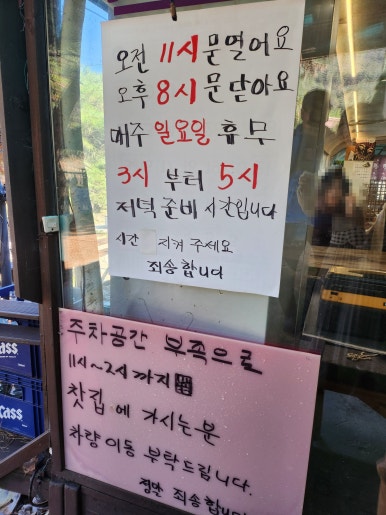 오전 11시 문열어요
오후 8시 문닫아요
매주 일요일 휴무
3시 부터 5시
저녁 준비 시간입니다
시간 지켜 주세요
죄송합니다
주차공간 부족으로
11시~2시까지
찻집에 가시는분
차량이동 부탁드립니다.
정말 죄송합니다
cass
cass